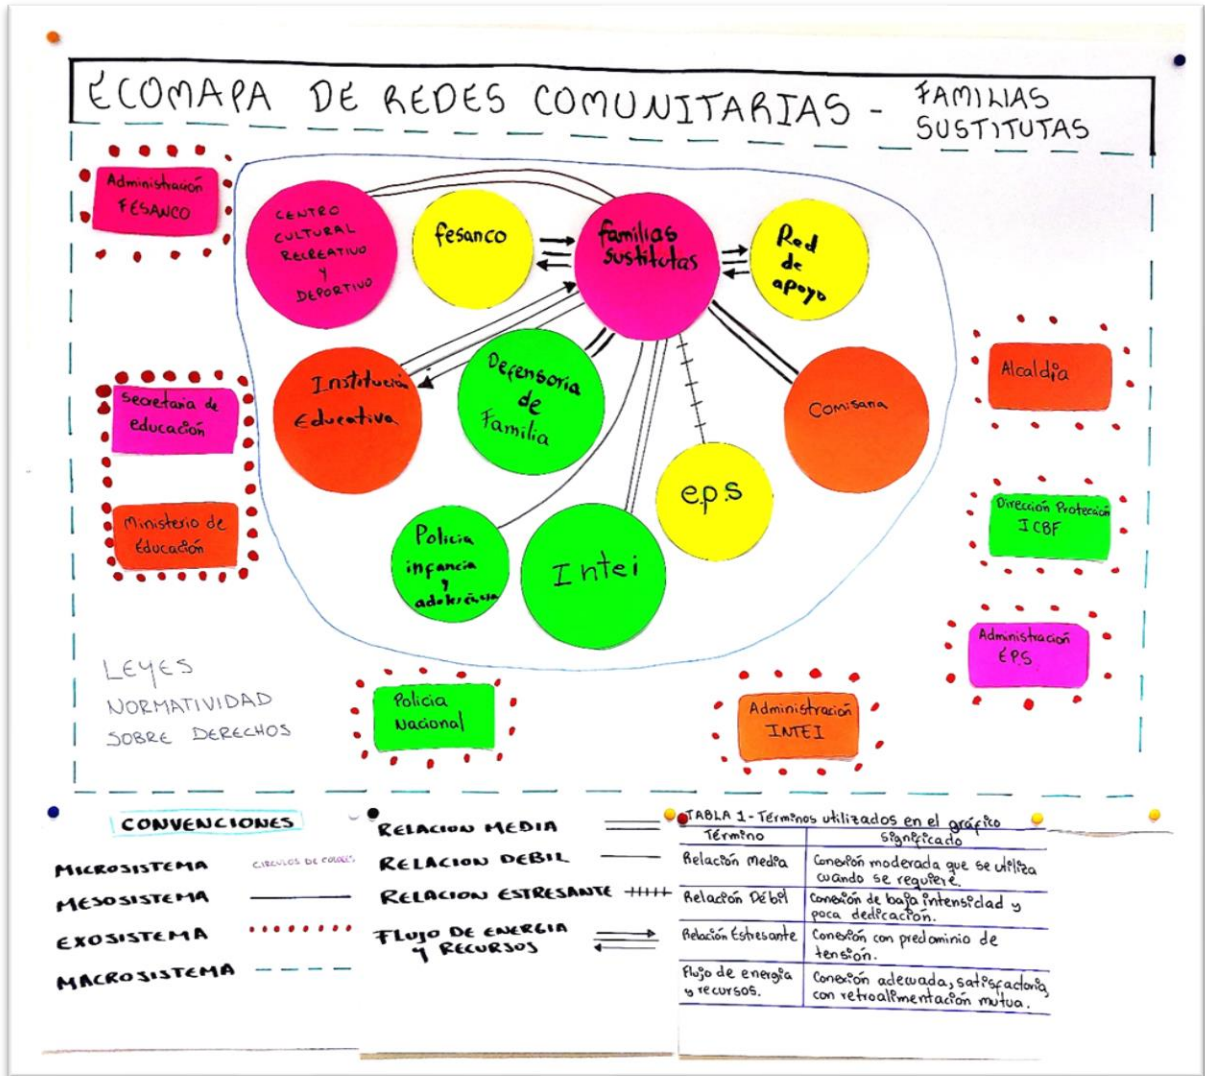 ECOMAPA DE REDES COMUNITARIAS - FAMILIAS
SUSTITUTAS
Administración
FESANCO
CENTRO
CULTURAL
RECREATIVO
Y
DEPORTIVO
fesanco
familias
sustitutas
Red
de
apoyo
Institución
Educativa
Defensoria
de
Familia
Comisaria
Alcaldia
Secretaria de
educación
Ministerio de
Educación
e.p.s
Dirección Protección
ICBF
Policia
infancia
y
adolescencia
Intei
Administración
E.P.S.
LEYES
NORMATIVIDAD
SOBRE DERECHOS
Policia
Nacional
Administración
INTEI
CONVENCIONES
MICROSISTEMA CIRCULOS DE COLORES
MESOSISTEMA
EXOSISTEMA
MACROSISTEMA
RELACION MEDIA
RELACION DEBIL
RELACION ESTRESANTE
FLUJO DE ENERGIA
Y RECURSOS
TABLA 1 - Términos utilizados en el gráfico
Término Significado
Relación Media Conexión moderada que se utiliza
cuando se requiere.
Relación Débil Conexión de baja intensidad y
poca dedicación.
Relación Estresante Conexión con predominio de
tensión.
Flujo de energia Conexión adecuada, satisfactoria,
y recursos. con retroalimentación mutua.